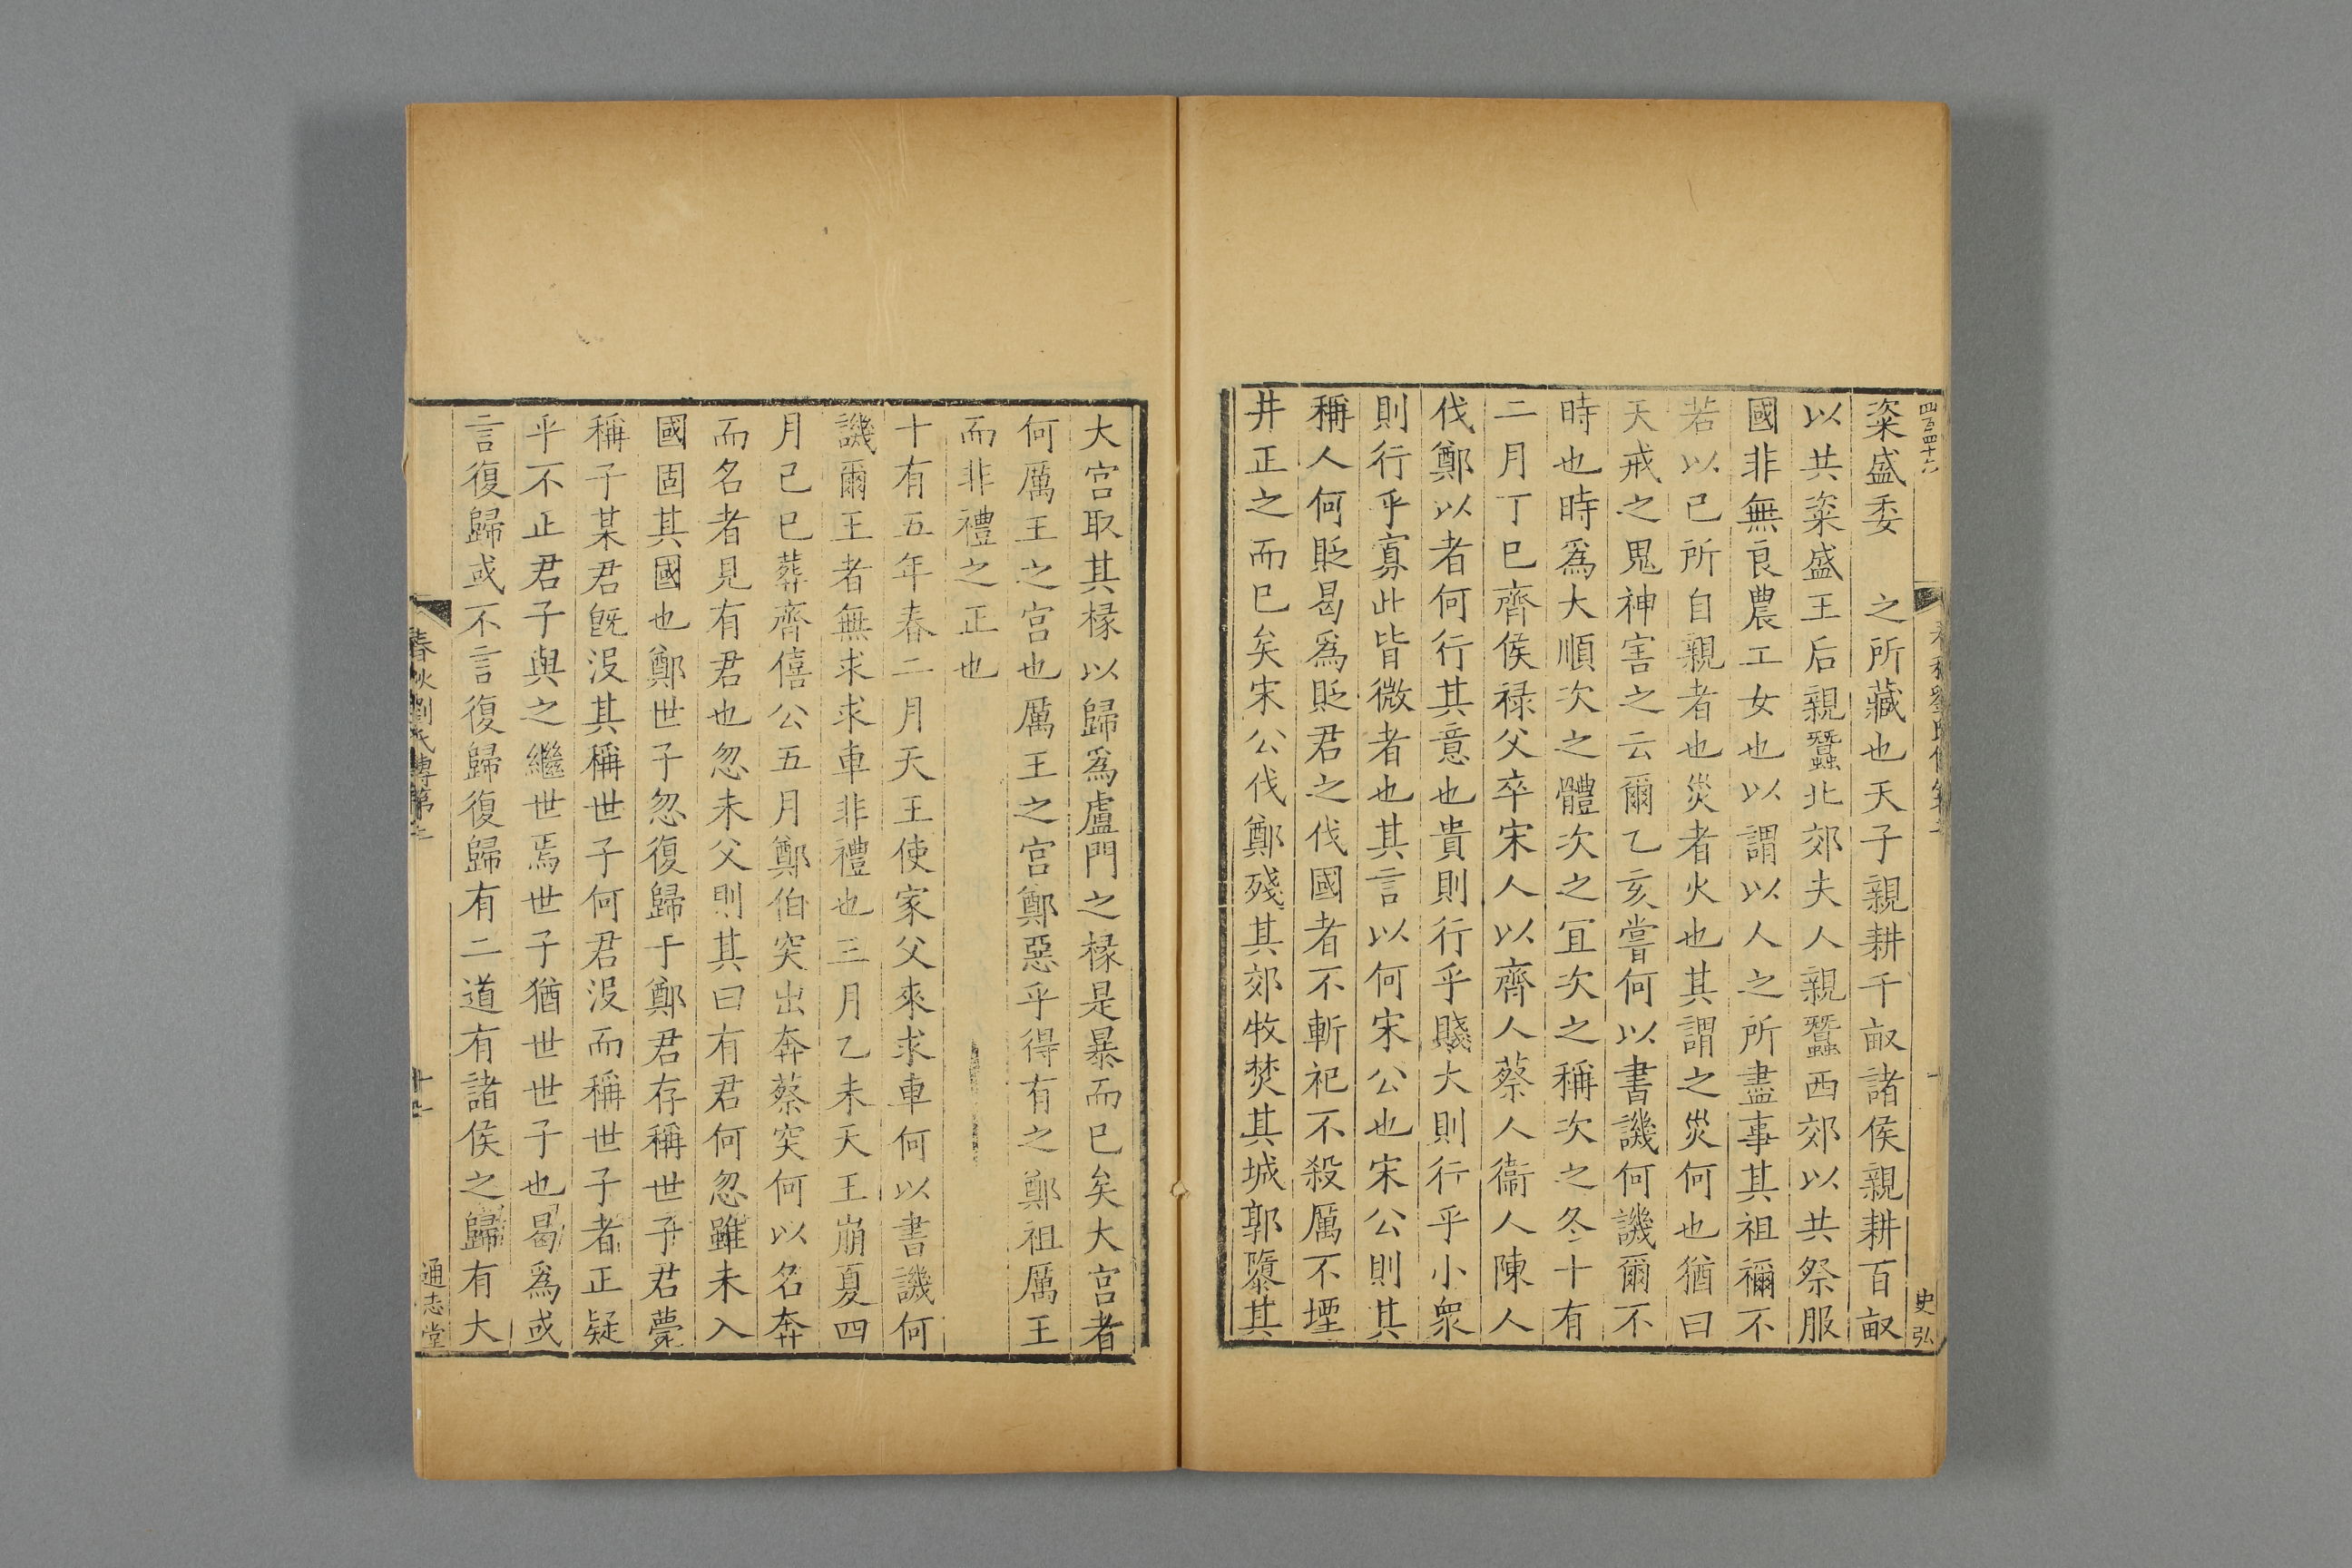 四百四十六
史弘
粢盛委　之所藏也天子親耕千畝諸侯親耕百畝
以共粢盛王后親蠶北郊夫人親蠶西郊以共祭服
國非無良農工女也以謂以人之所盡事其祖禰不
若以已所自親者也災者火也其謂之災何也猶曰
天戒之鬼神害之云爾乙亥嘗何以書譏何譏爾不
時也時爲大順次之體次之冝次之稱次之冬十有
二月丁巳齊侯禄父卒宋人以齊人蔡人衞人陳人
伐鄭以者何行其意也貴則行乎賤大則行乎小衆
則行乎寡此皆微者也其言以何宋公也宋公則其
稱人何貶曷爲貶君之伐國者不斬祀不殺厲不堙
井正之而已矣宋公伐鄭殘其郊牧焚其城郭隳其
大宫取其椽以歸爲盧門之椽是暴而已矣大宫者
何厲王之宫也厲王之宫鄭惡乎得有之鄭祖厲王
而非禮之正也
十有五年春二月天王使家父來求車何以書譏何
譏爾王者無求求車非禮也三月乙未天王崩夏四
月己巳葬齊僖公五月鄭伯突出奔蔡突何以名奔
而名者見有君也忽未父則其曰有君何忽雖未入
國固其國也鄭世子忽復歸于鄭君存稱世子君薨
稱子某君旣没其稱世子何君没而稱世子者正疑
乎不正君子與之繼世焉世子猶世世子也曷爲或
言復歸或不言復歸復歸有二道有諸侯之歸有大
春秋劉氏傳第二
通志堂